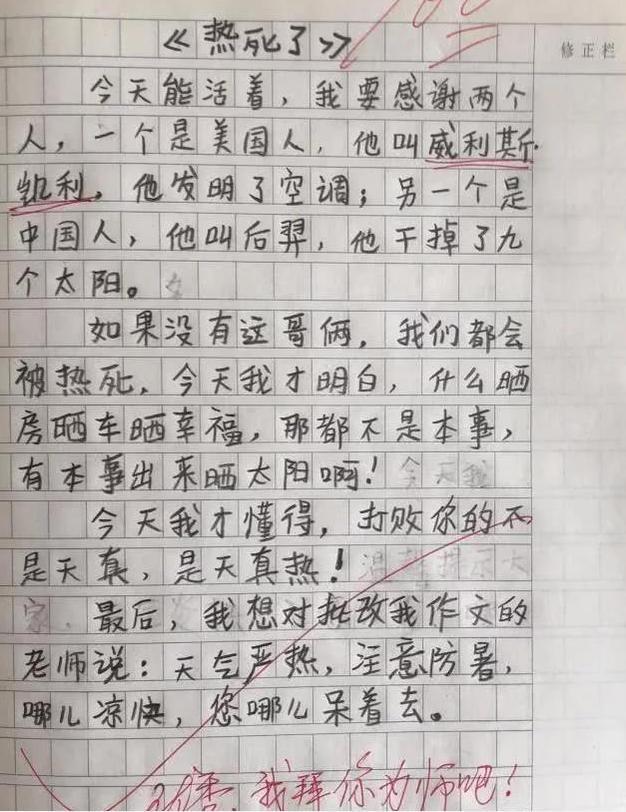 100
修正栏
《热死了》
今天能活着，我要感谢两个
人，一个是美国人，他叫威利斯·
凯利，他发明了空调；另一个是
中国人，他叫后羿，他干掉了九
个太阳。
如果没有这哥俩，我们都会
被热死，今天我才明白，什么晒
房晒车晒幸福，那都不是本事，
有本事出来晒太阳啊！今天我
今天我才懂得，打败你的不
是天真，是天真热！温馨提示大
家，最后，我想对批改我作文的
老师说：天气严热，注意防暑，
哪儿凉快，您哪儿呆着去。
我拜你为师吧！